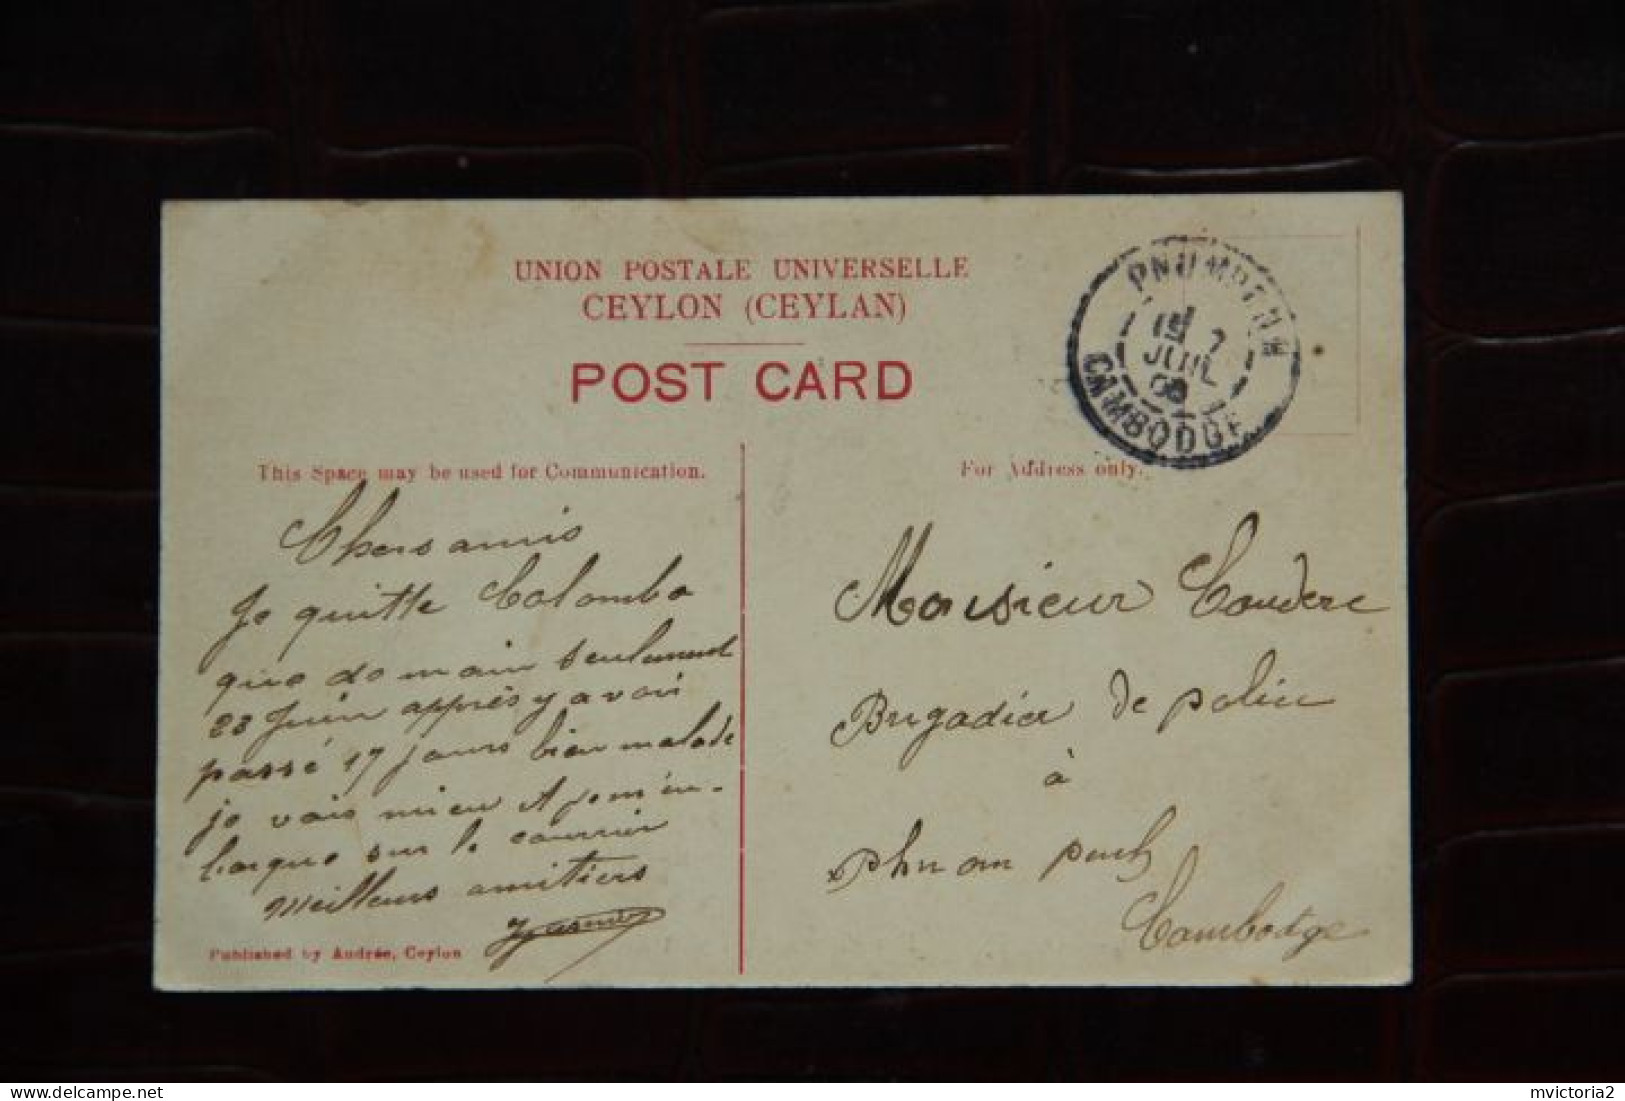 UNION POSTALE UNIVERSELLE
CEYLON (CEYLAN)
POST CARD
PNUMPENH
15 7
JUIL
CAMBODGE
This Space may be used for Communication.
For Address only.
Chers amis
Je quitte Colombo
que demain seulement
28 Juin apprès y avoir
passé 17 jours bien malade
je vais mieu et je m'em-
barque sur le courrier
Meilleurs amitiers
Published by Andrée, Ceylon
Monsieur Couderc
Brigadier de police
à
Phnom penh
Cambodge
mvictoria2